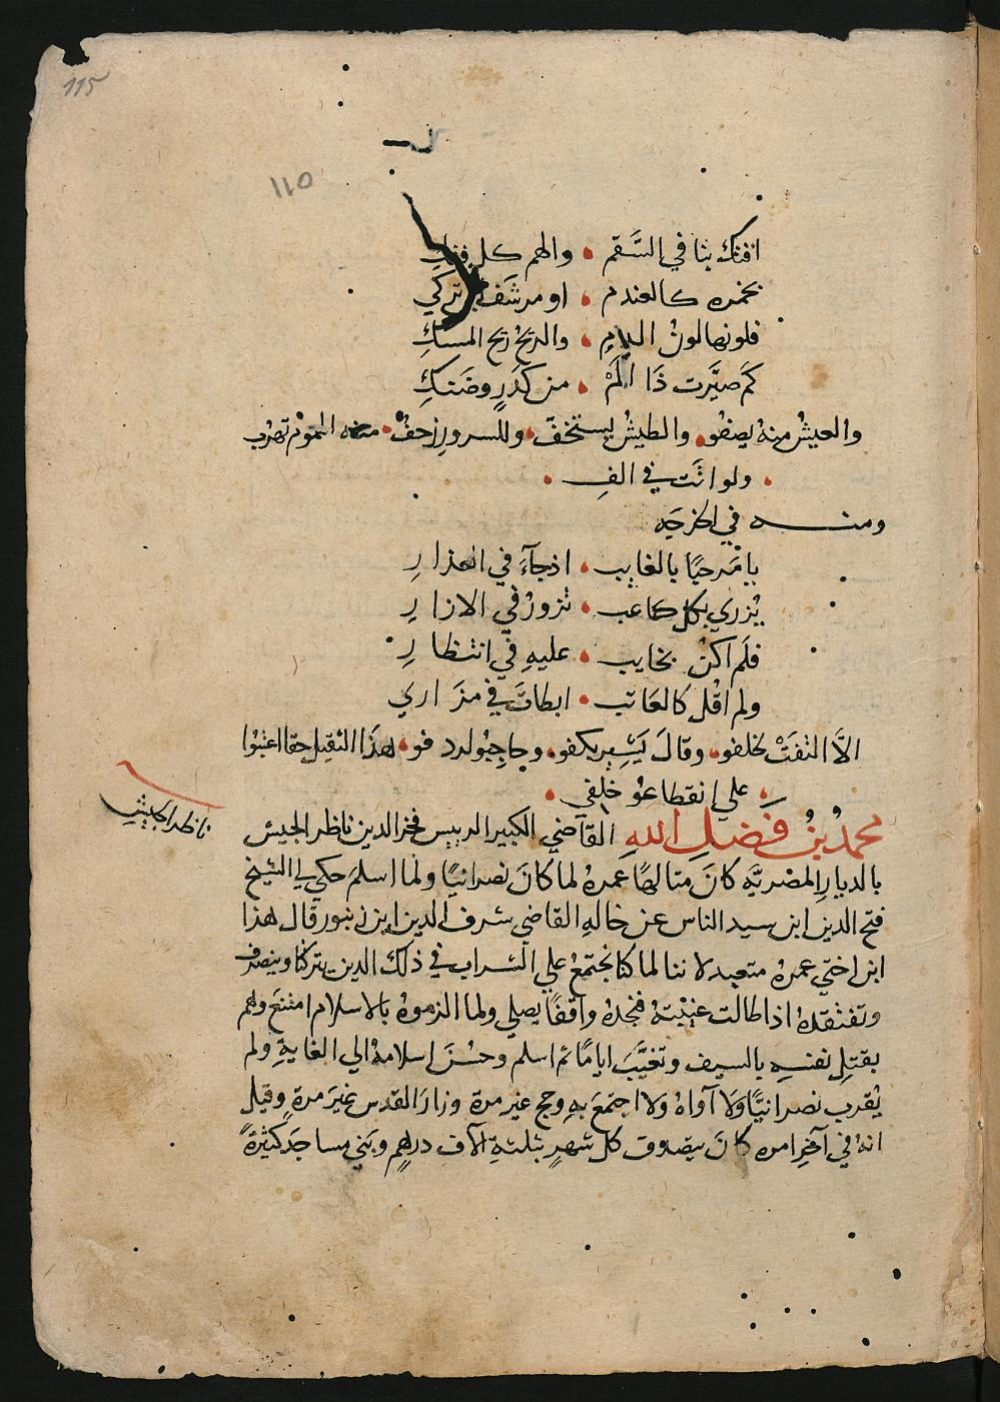 115
١١٥
افتك بنا في السقم • والهم كل فتك
بخمرة كالعندم • او مرشف تركي
فلونها لون الدم • والريح ريح المسك
كم صيرت ذا الم • من كدر وضنك
والعيش منه يصفو • والطيش يستخف • وللسرور زحف • منه الهموم تهرب
• ولو اتت في الف •
ومنه في الخرجه
يا مرحبا بالغايب • اذ جآء في العذار
يزري بكل كاعب • تزور في الازار
فلم اكن بخايب • عليه في انتظار
ولم اقل كالعاتب • ابطات في مزاري
الا التفت لخلفو • وقال يشير بكفو • وحاجبو لردفو • هذا الثقيل حقا اعتبوا
• علي انقطاعو خلفي •
محمد بن فضل الله القاضي الكبير الرييس فخر الدين ناظر الجيش
ناظر الجيش
بالديار المصرية كان متالها عمره لما كان نصرانيا ولما اسلم حكي لي الشيخ
فتح الدين ابن سيد الناس عن خاله القاضي شرف الدين ابن زنبور قال هذا
ابن اختي عمره متعبد لاننا لما كنا نجتمع علي الشراب في ذلك الدين يتركنا وينصرف
وتفتقده اذا طالت غيبته فنجده واقفا يصلي ولما الزموه بالاسلام امتنع وهم
بقتل نفسه بالسيف وتغيب اياما ثم اسلم وحسن اسلامه الي الغاية ولم
يقرب نصرانيا ولا آواه ولا اجتمع به وحج غير مرة وزار القدس غير مرة وقيل
انه في آخر امره كان يتصدق كل شهر بثلثة آلاف درهم وبني مساجد كثيرة